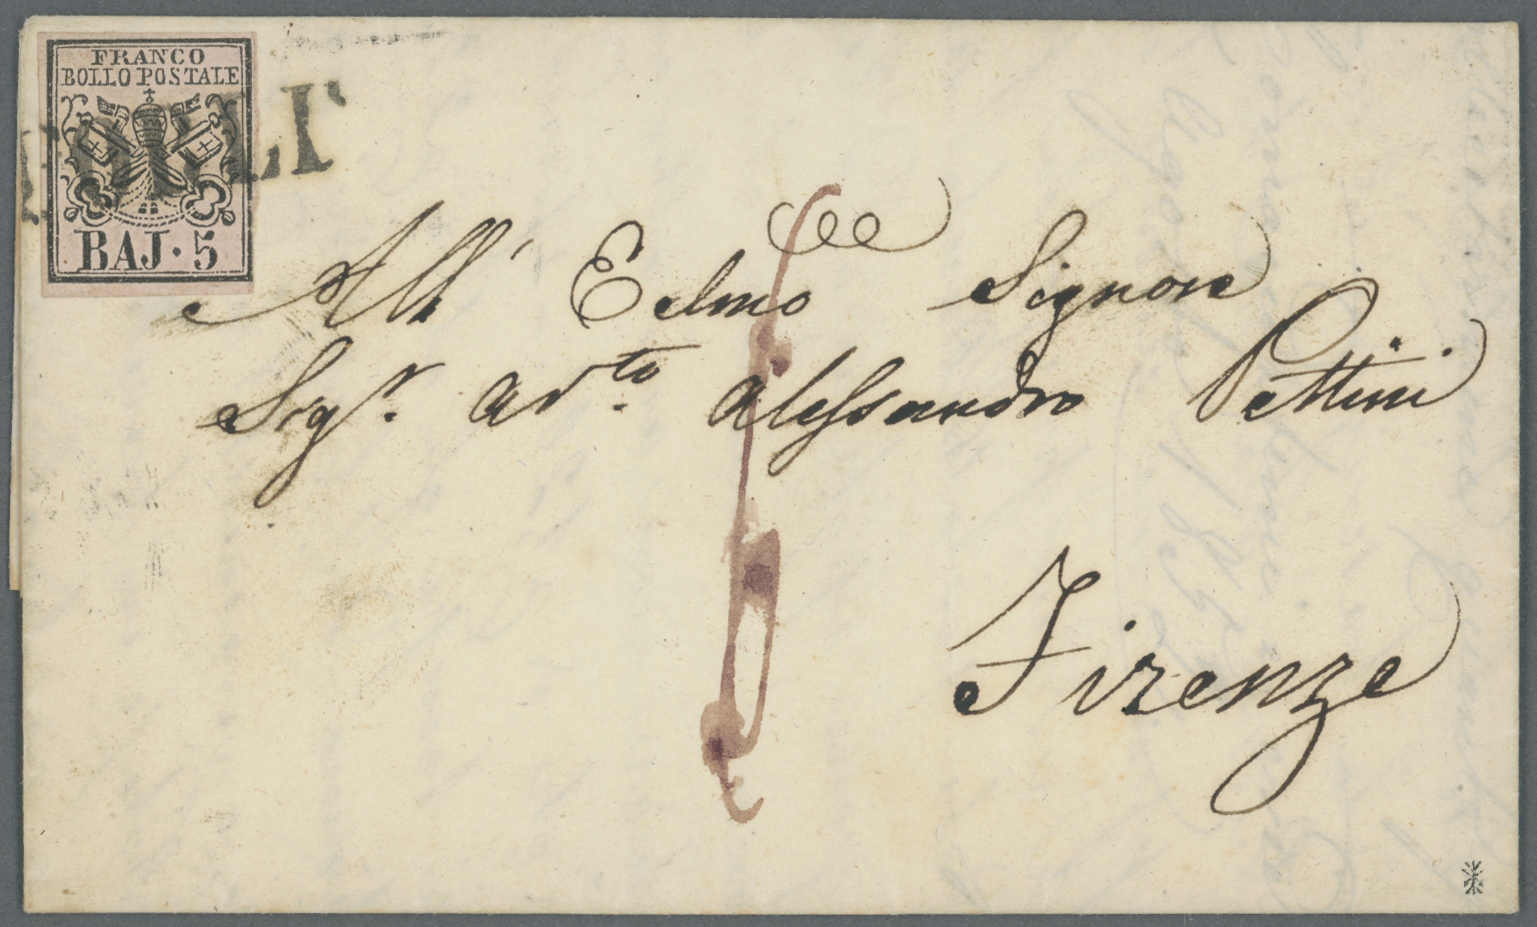 FRANCO
BOLLO POSTALE
BAJ. 5
All' Eclmo Signore
Sigr. Avto. Alessandro Pettini
Firenze